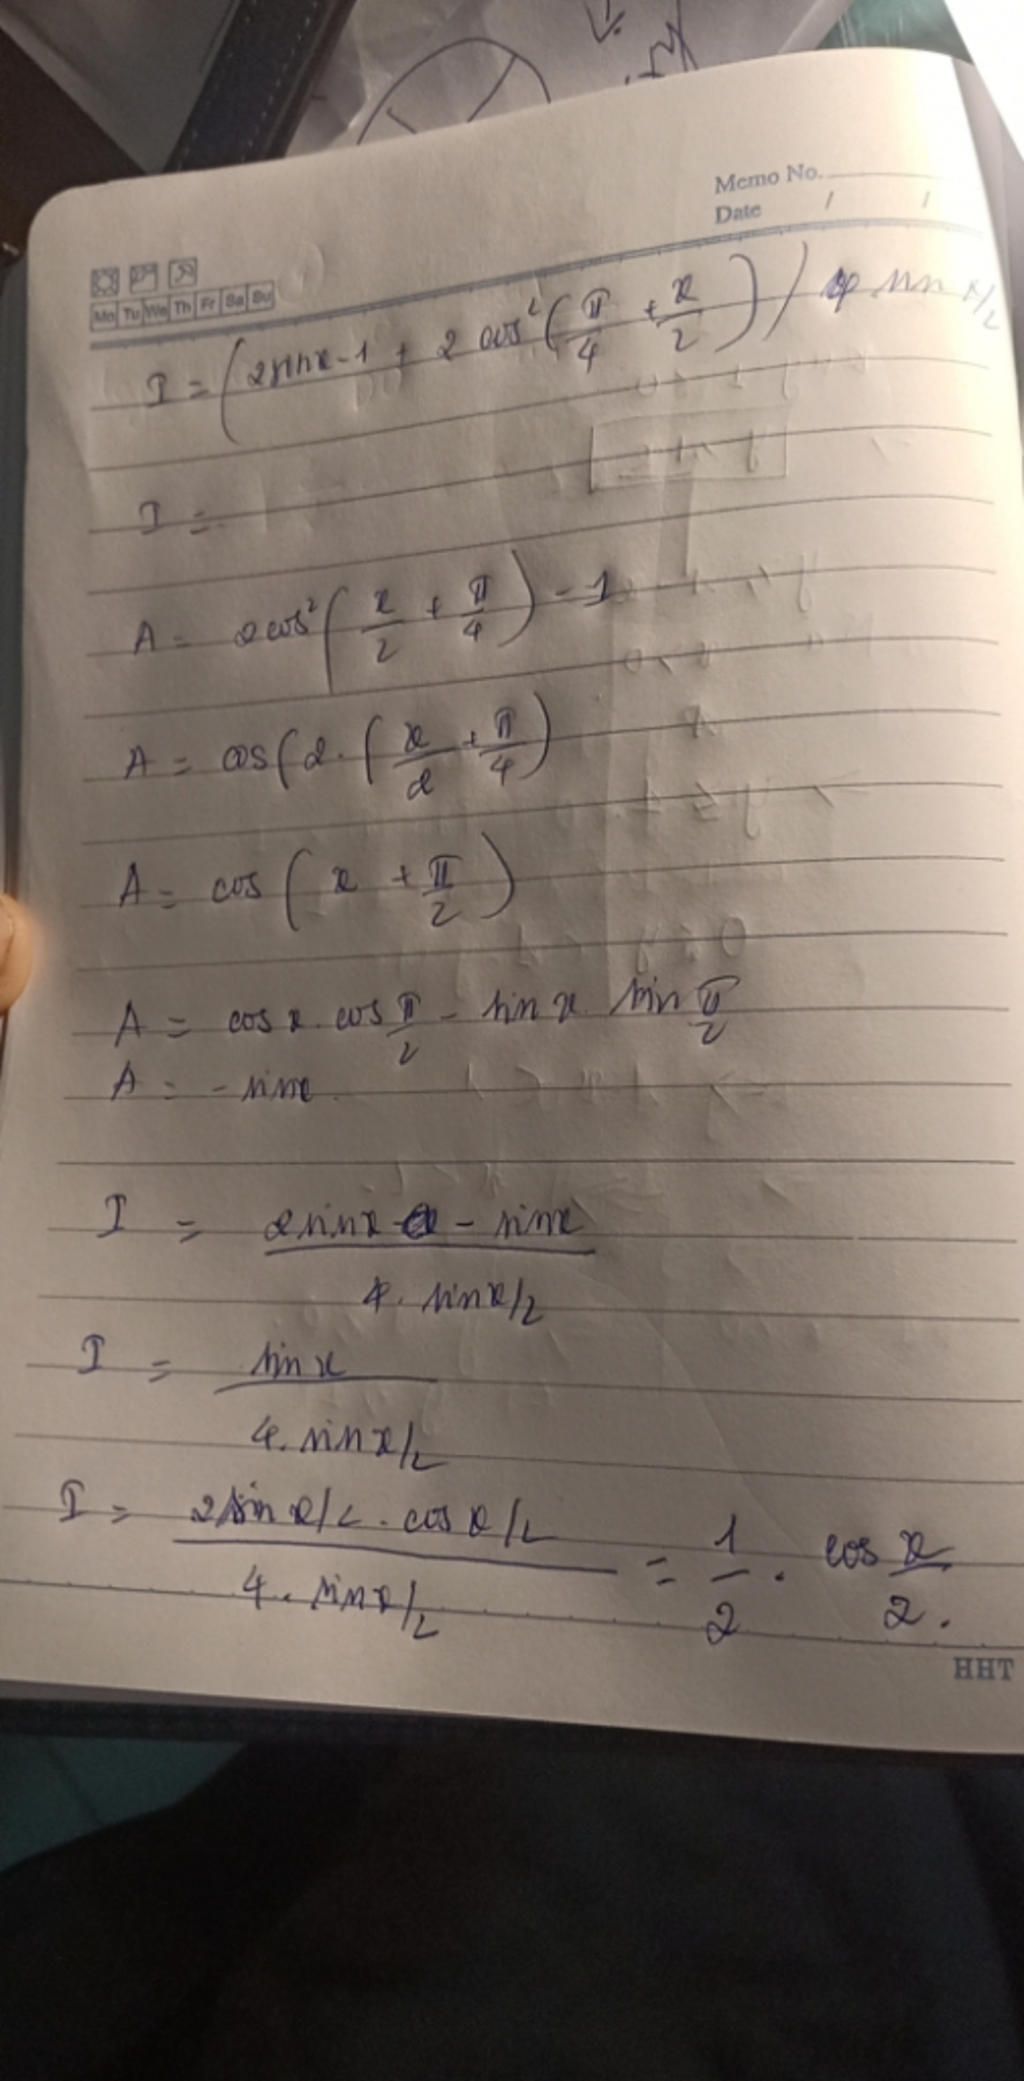 Memo No.
Date / /
Mo Tu We Th Fr Sa Su
I = (2sinx - 1 + 2 cos²(π/4 + x/2)) / 4 sin x/2
I =
A = 2cos²(x/2 + π/4) - 1
A = cos(2.(x/2 + π/4)
A = cos(x + π/2)
A = cos x. cos π/2 - sin x. sin π/2
A = - sinx.
I = 2sinx - sinx / 4. sinx/2
I = sinx / 4. sinx/2
I = 2sin x/2. cos x/2 / 4. sinx/2 = 1/2 . cos x/2.
HHT